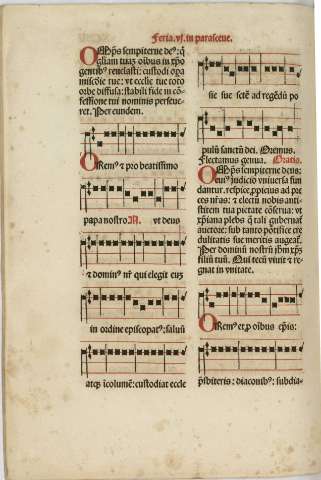 Feria. vj. in parasceue.
OMnipo̅s sempiterne de9: q̇
gl̅iam tuaʒ oi̅bus in xp̅o
gentib9 reuelasti: custodi oꝑa
mi̅e tue: vt eccl̅ie tue toto
orbe diffusa: stabili fide in co̅-
fessione tui nominis perseue-
ret. Per eundem.
ORem9 ⁊ pro beatissimo
papa nostro N. vt deus
⁊ domin9 nr̅ qui elegit eu̅
in ordine episcopat9: saluu̅
atqʒ i̅colume̅: custodiat eccle
sie sue sct̅e ad regendu̅ po
pulu̅ sanctu̅ dei. Oremus.
Flectamus genua. Oratio.
OMnipo̅s sempiterne deus:
cui9 iudicio vniuersa fun
dantur. respice ꝓpicius ad pre
ces nr̅as: ⁊ electu̅ nobis anti-
stitem tua pietate co̅serua: vt
xp̅iana plebs q̅ tali gubernat̉
auctore: sub tanto po̅tifice cre
dulitatis sue meritis augeat̉.
Per dominu̅ nostru̅ ih̅m xp̅m
filiu̅ tuu̅. Qui tecu̅ viuit ⁊ re-
gnat in vnitate.
ORem9 et ꝓ oi̅bus ep̅is:
p̅sbiteris: diaconib9: subdia-